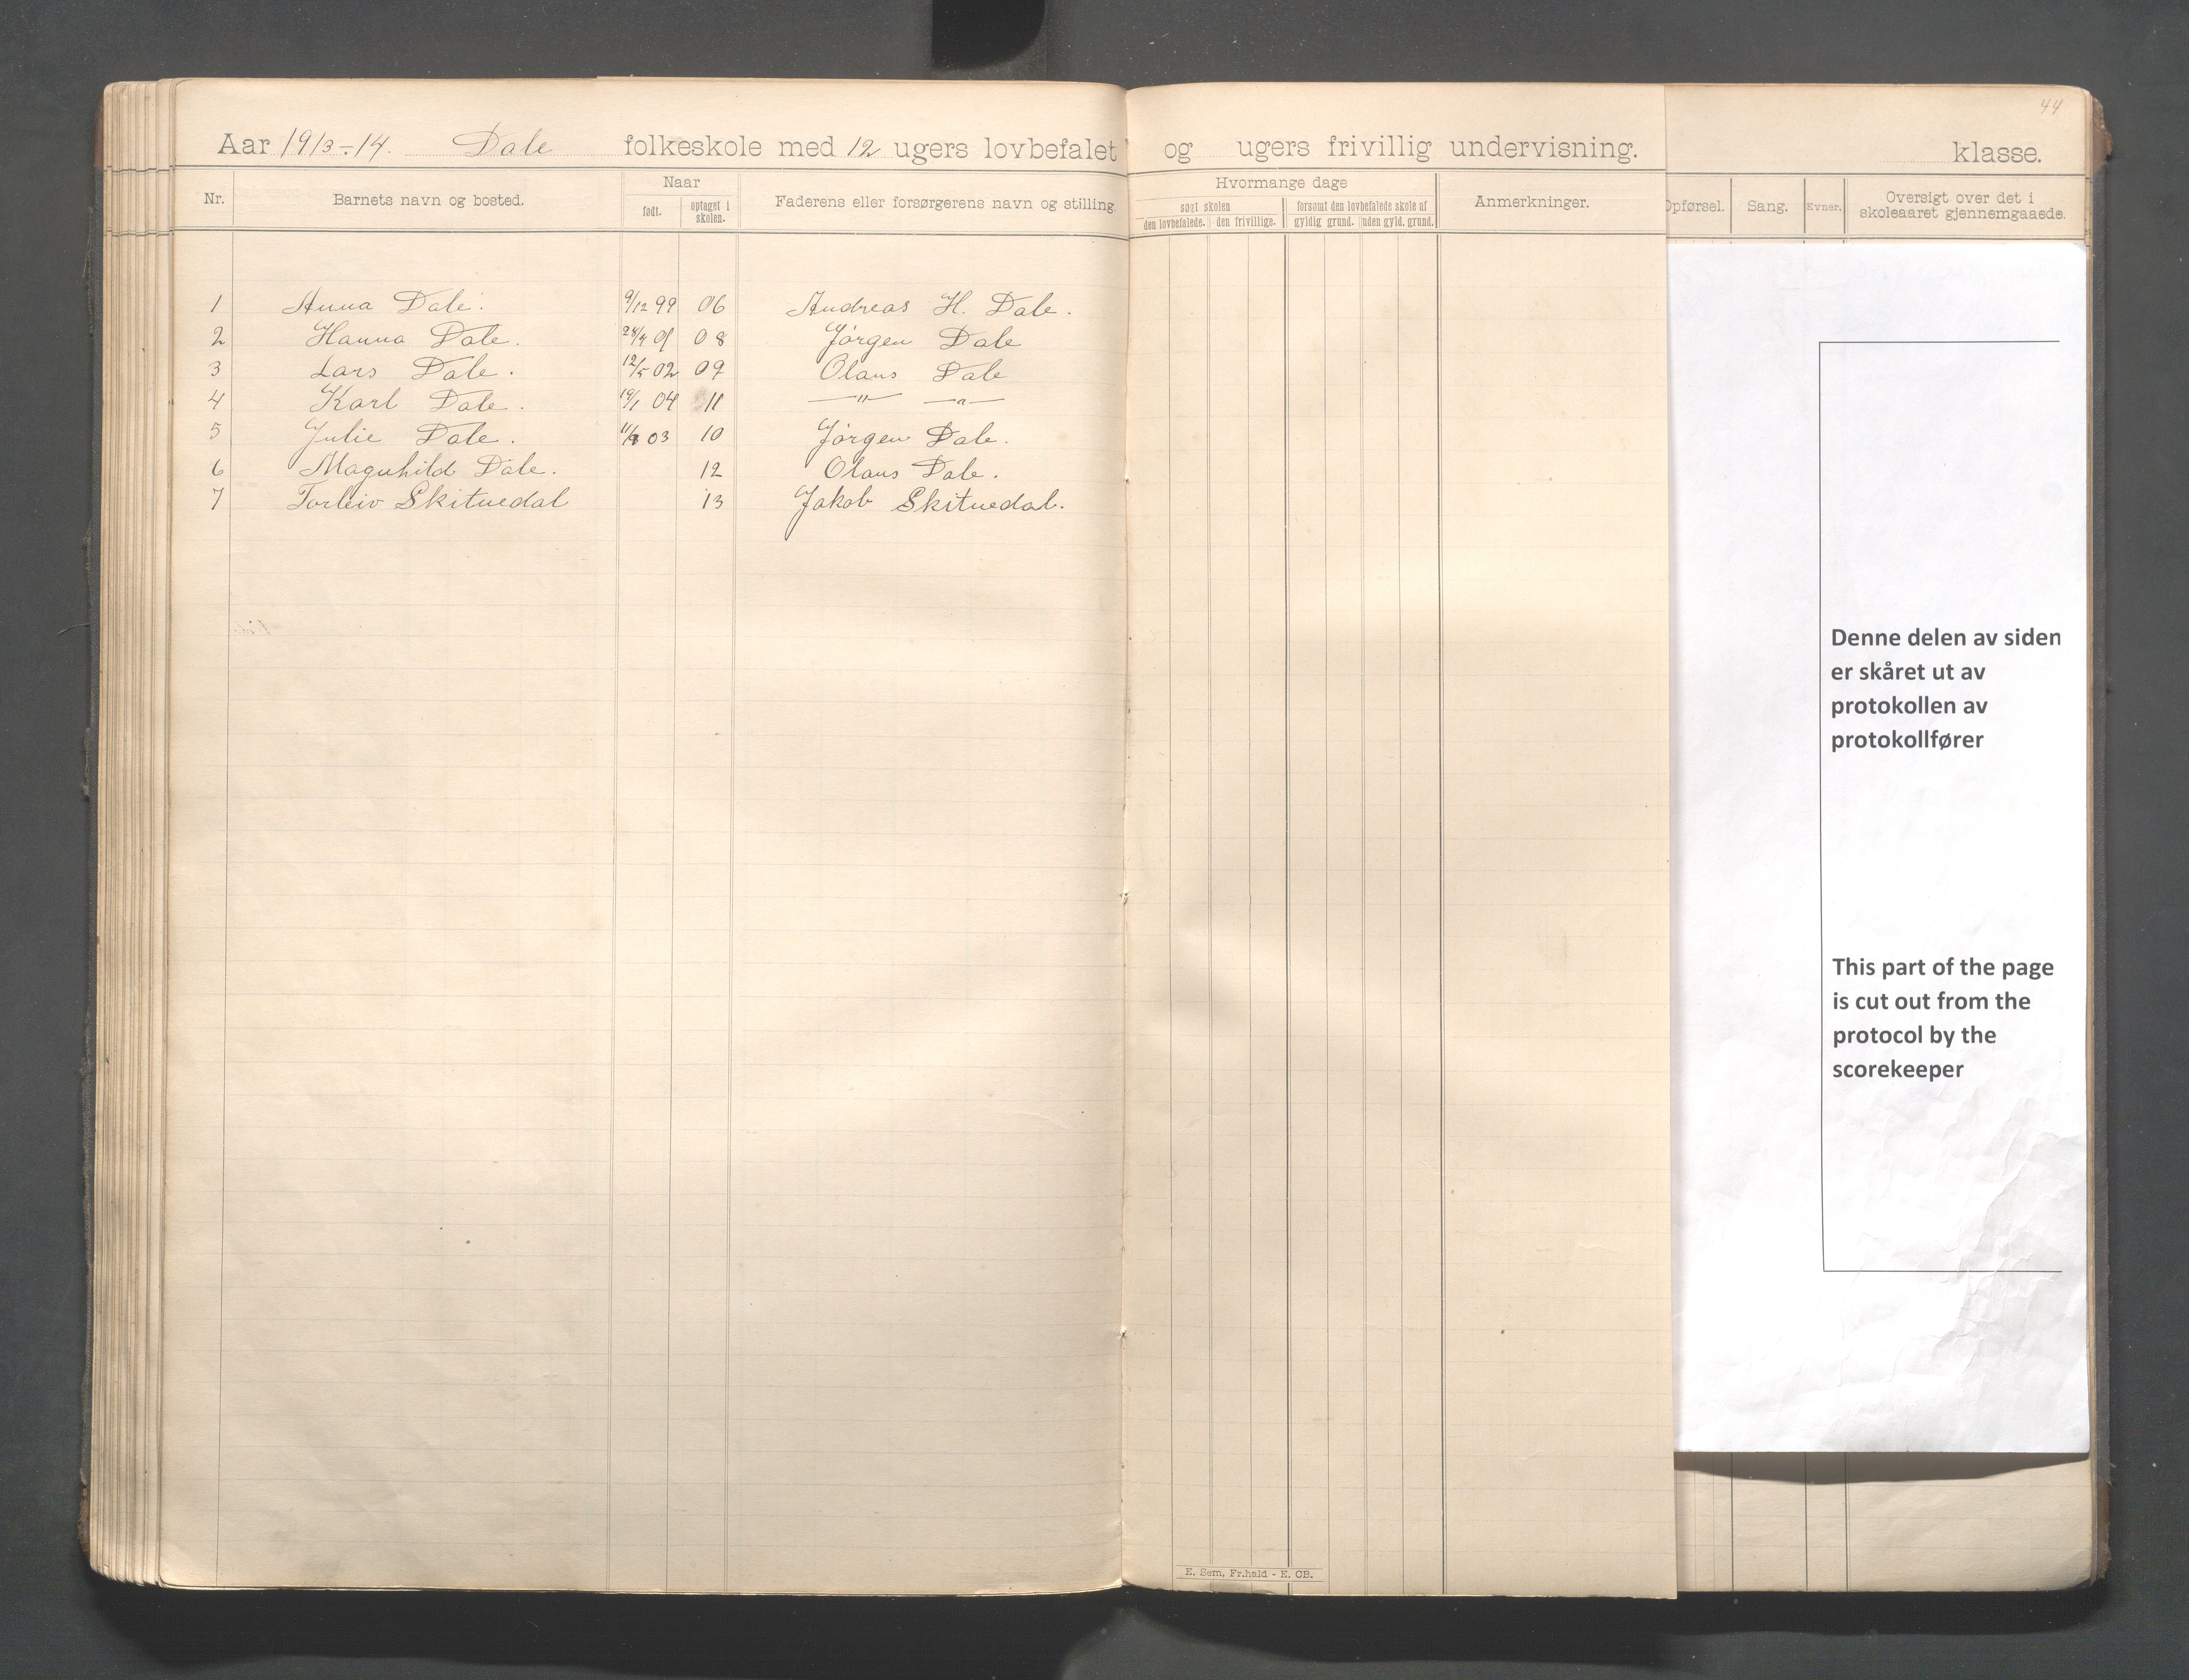 44
Aar 1913-14. Dale folkeskole med 12 ugers lovbefalet og ugers frivillig undervisning. klasse.
Nr. Barnets navn og bosted. Naar Faderens eller forsørgerens navn og stilling. Hvormange dage Anmerkninger. Opførsel. Sang. Evner. Oversigt over det i skoleaaret gjennemgaaede.
født. optaget i skolen. søgt skolen forsømt den lovbefalede skole af
den lovbefalede. den frivillige. gyldig grund. uden gyld. grund.
1 Anna Dale. 9/12 99 06 Andreas H. Dale.
2 Hanna Dale. 08 Jörgen Dale
3 Lars Dale. 12/5 02 09 Olaus Dale
4 Karl Dale. 19/1 04 11 —"— —"—
5 Julie Dale. 03 10 Jörgen Dale.
6 Magnhild Dale. 12 Olaus Dale.
7 Torleiv Skitnedal 13 Jakob Skitnedal.
Denne delen av siden
er skåret ut av
protokollen av
protokollfører
This part of the page
is cut out from the
protocol by the
scorekeeper
E. Sem, Fr.hald - E. CB.